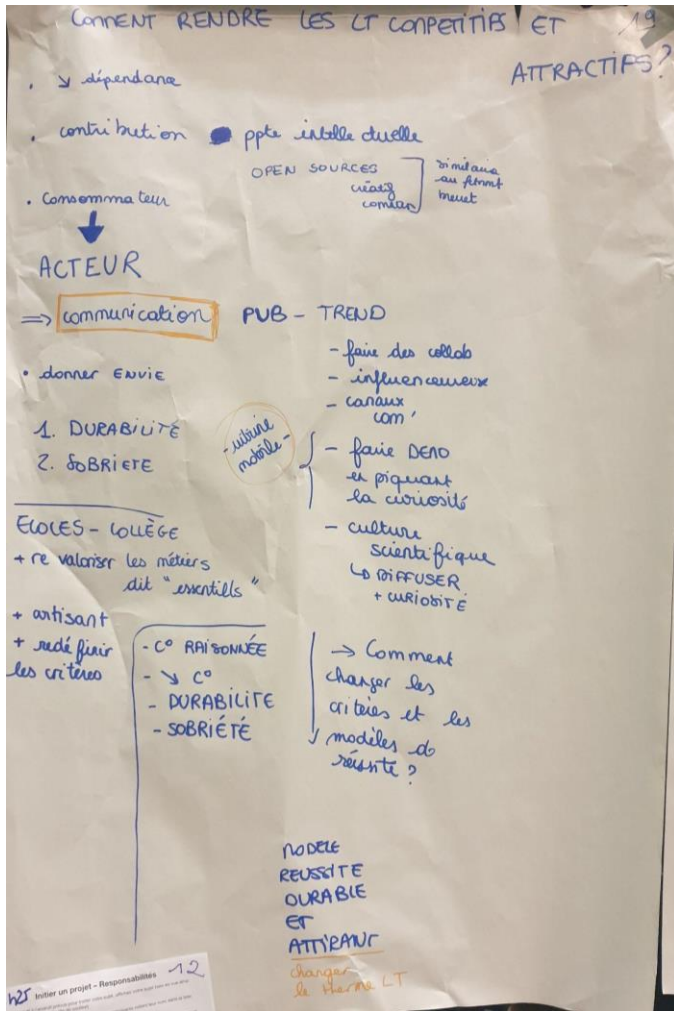 COMMENT RENDRE LES LT COMPETITIFS ET
ATTRACTIFS?
19
. ↘ dépendance
. contribution ppte intellectuelle
OPEN SOURCES
créatif
similaire
au
. Consommateur
ACTEUR
⇒ communication PUB - TREND
• donner ENVIE
1. DURABILITÉ
2. SOBRIETE
- faire des collab
- influenceureux
- canaux
com'
- vitrine
mobile -
- faire DEMO
en piquant
la curiosité
- culture
scientifique
↳ DIFFUSER
+ CURIOSITÉ
ECOLES - COLLÈGE
+ re valoriser les métiers
dit "essentiells"
+ artisant
+ redéfinir
les critères
- C° RAISONNÉE
- ↘ C°
- DURABILITE
- SOBRIÉTÉ
→ Comment
changer les
critères et les
modèles de
réussite ?
MODELE
REUSSITE
DURABLE
ET
ATTIRANT
changer
le therme LT
12
h25 Initier un projet – Responsabilités